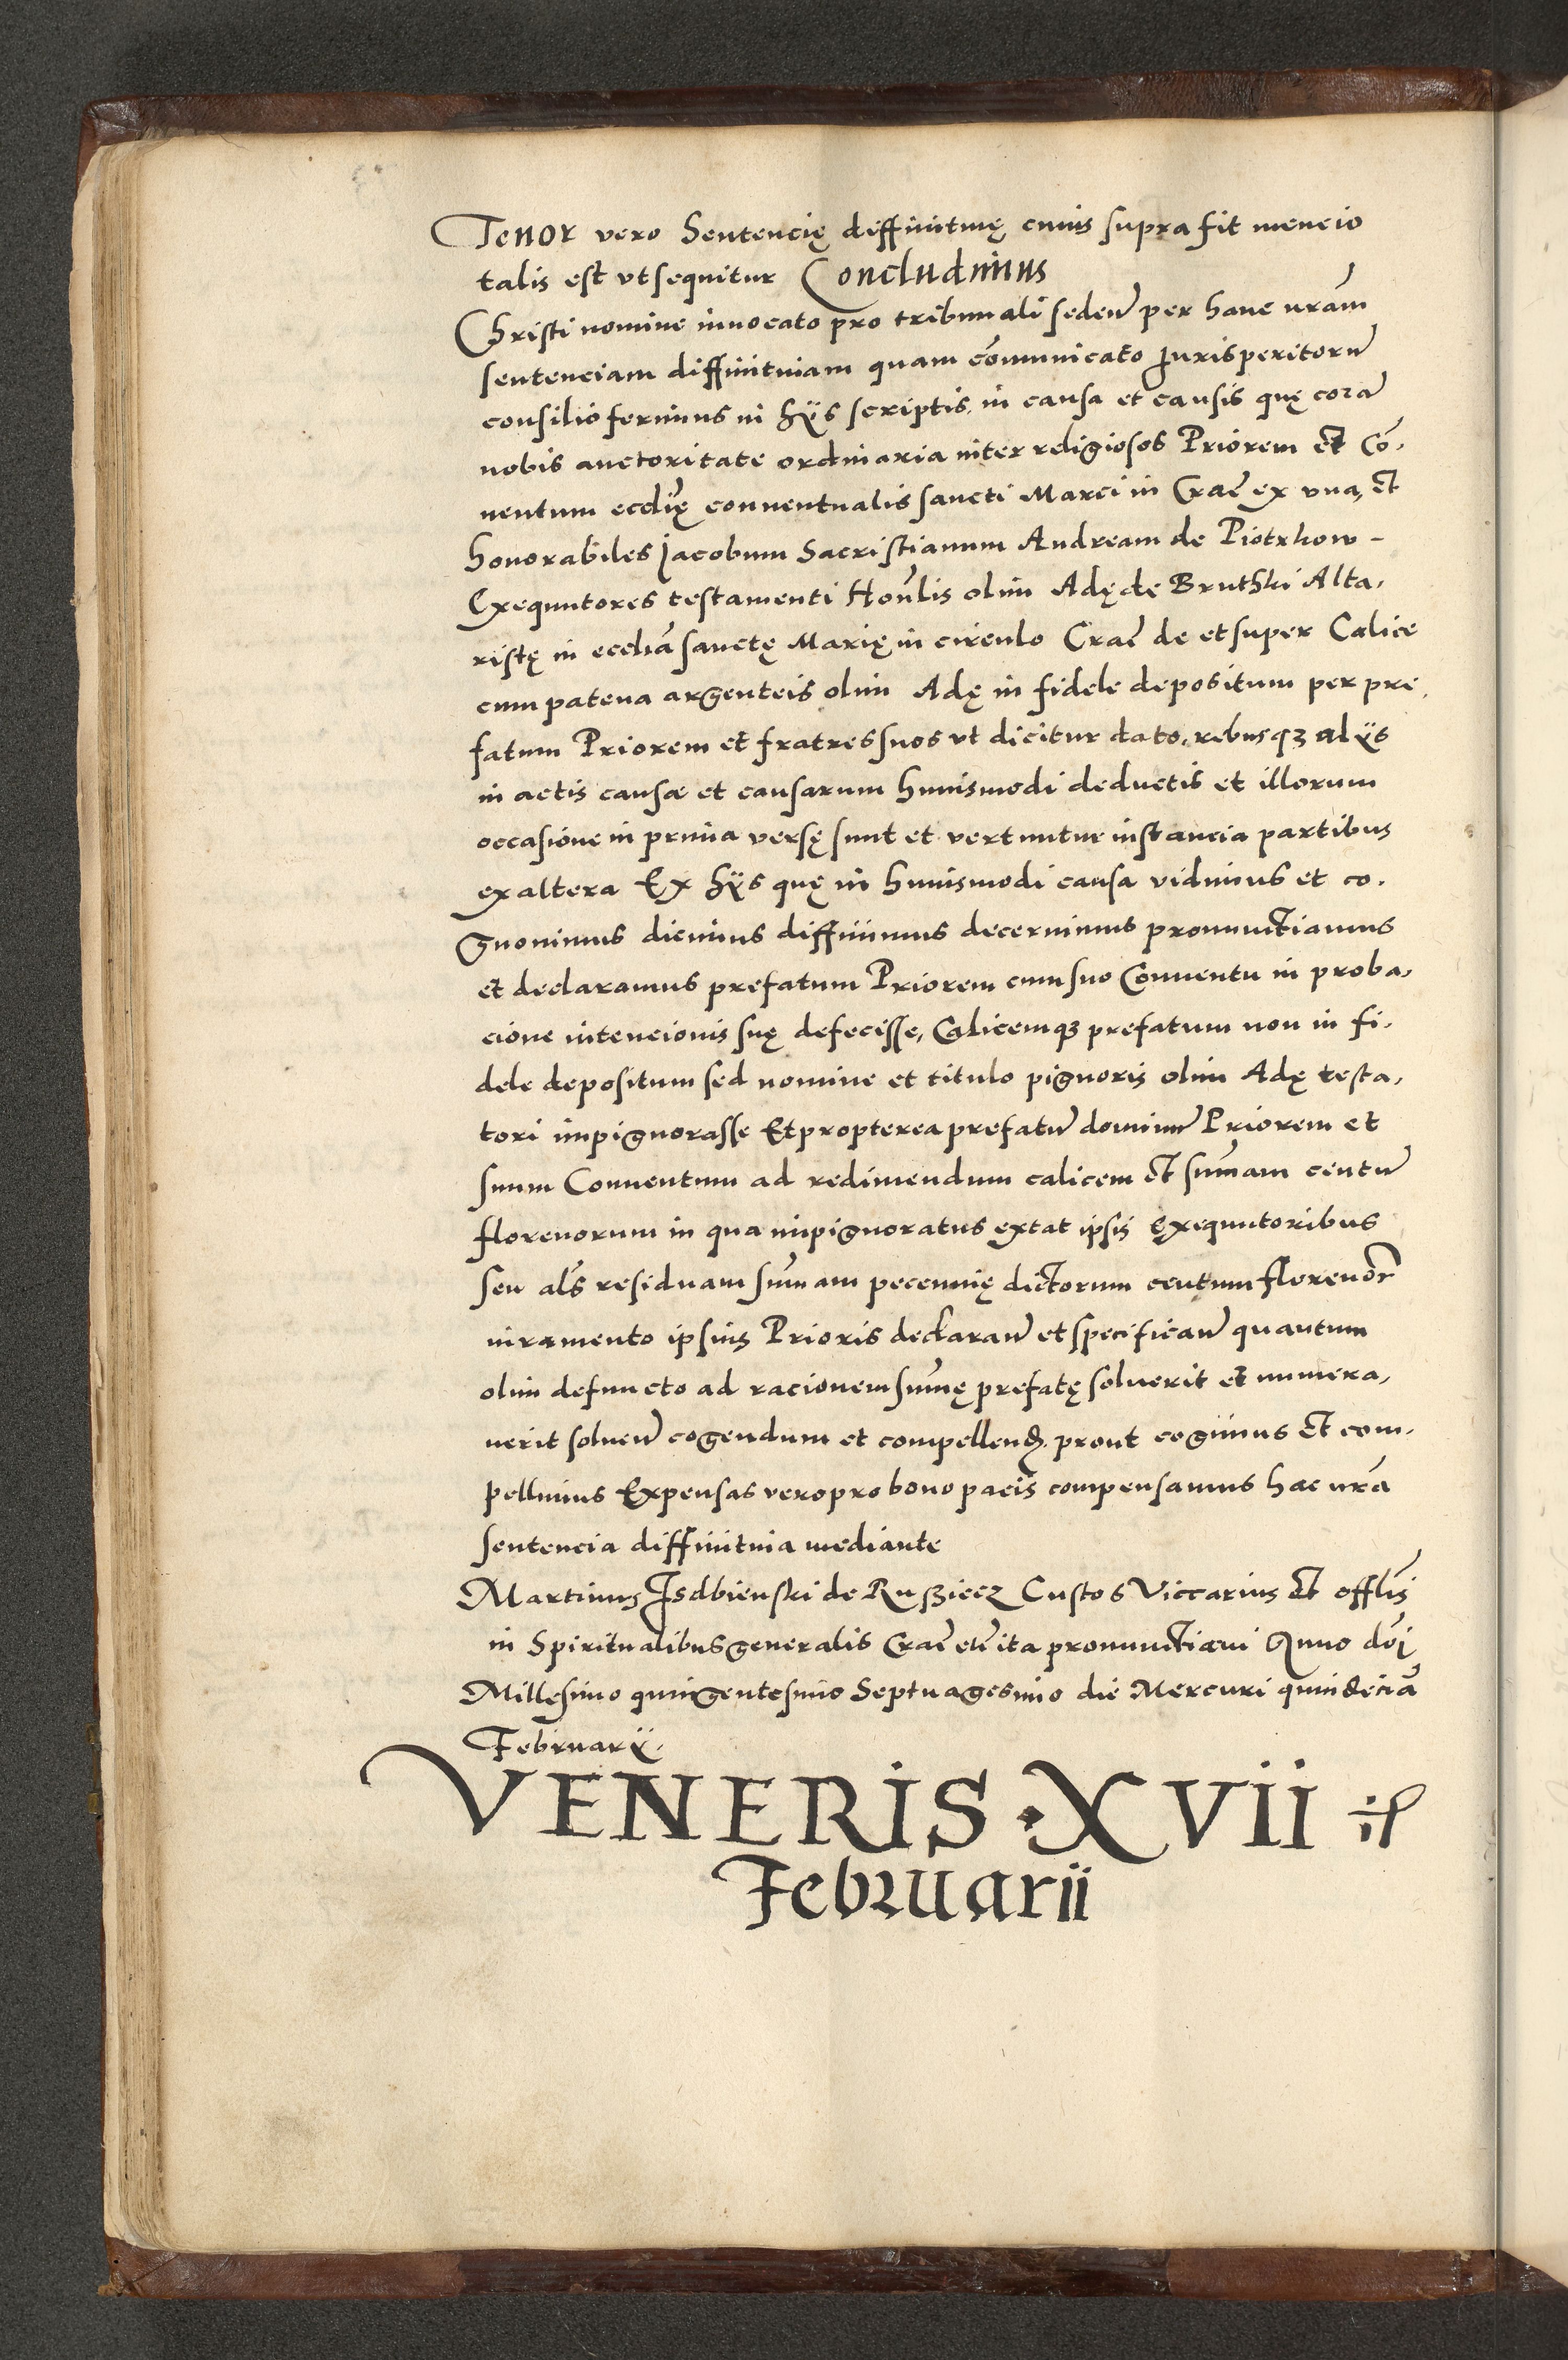 Tenor vero Sentencię diffinitivę cuius supra fit mencio
talis est ut sequitur Concludimus
Christi nomine invocato pro tribunali seden̄ per hanc nr̄am
sentenciam diffinitivam quam cōmunicato Jurisperitorū
consilio ferimus in hÿs scriptis, in causa et causis quę corā
nobis auctoritate ordinaria inter religiosos Priorem et Cō-
ventum eccl̄ię conventualis sancti Marci in Crac̄ ex una, et
honorabiles Jacobum Sacristianum Andream de Piotrkow -
Exequutores testamenti Hon̄lis olim Adę de Bruthki Alta-
ristę in eccl̄ia sanctę Marię in circulo Crac̄ de et super Calice
cum patena argenteis olim Adę in fidele depositum per pre-
fatum Priorem et fratres suos ut dicitur dato, rebusqꝫ alÿs
in actis causæ et causarum huiusmodi deductis et illorum
occasione in prima versę sunt et vertuntur instancia partibus
ex altera Ex hÿs quę in huiusmodi causa vidimus et co-
gnovimus dicimus diffinimus decernimus pronunctiamus
et declaramus prefatum Priorem cum suo Conventu in proba-
cione intencionis suę defecisse, Calicemqꝫ prefatum non in fi-
dele depositum sed nomine et titulo pignoris olim Adę testa-
tori impignorasse Et propterea prefatū dominū Priorem et
suum Conventum ad redimendum calicem et sum̄am centū
florenorum in qua impignoratus extat ipsis Exequutoribus
seu al̄s residuam sum̄am pecunię dictorum centum florenor̄
iuramento ipsius Prioris declaran̄ et specifican̄ quantum
olim defuncto ad racionem sum̄ę prefatę solverit et numera-
verit solven̄ cogendum et compellend. prout cogimus et com-
pellimus Expensas vero pro bono pacis compensamus hac nr̄a
sentencia diffinitiva mediante
Martinus Isdbienski de Rusziecz Custos Viccarius et offl̄is
in Spiritualibus generalis Crac̄ etc̄ ita pronunctiavi Anno dn̄i
Millesimo quingentesimo Septuagesimo die Mercuri quindecīa
Februarÿ.
VENERIS · XVII
Februarii